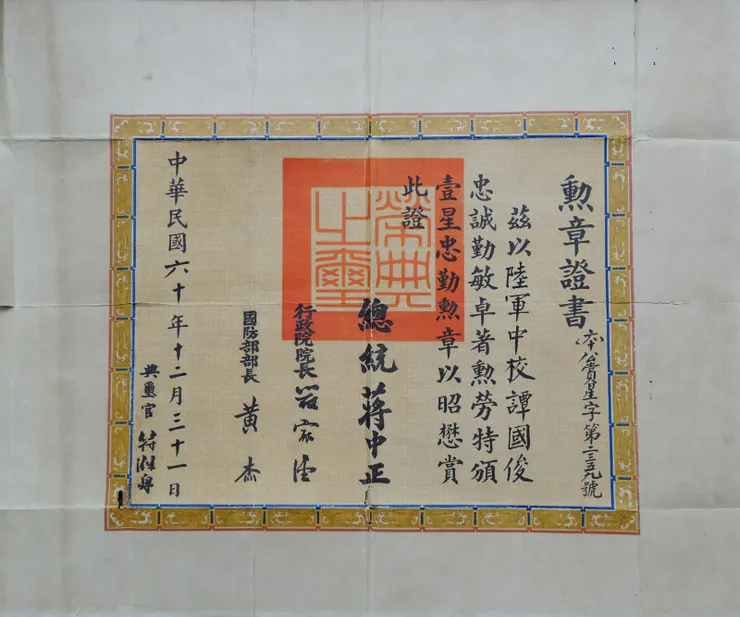 勲章證書
第二三五九號
茲以陸軍中校譚國俊
忠誠勤敏卓著勲勞特頒
壹星忠勤勲章以昭懋賞
此證
榮典之璽
總統蔣中正
行政院院長
國防部部長 黃杰
中華民國六十年十二月三十一日
典璽官